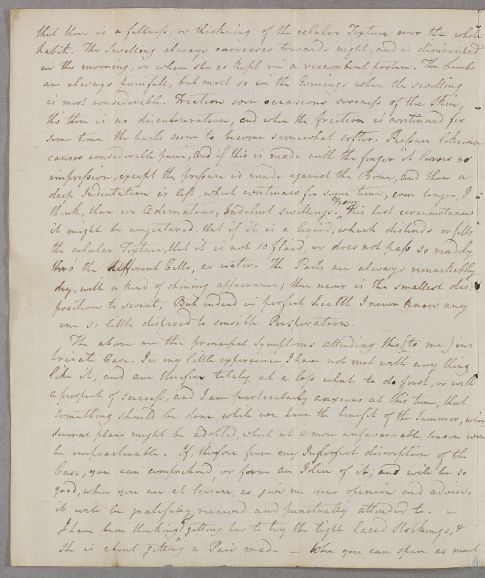 that there is a fullness, or thickening of the celular Texture over the whole
habit. The Swelling always increases towards night, and is diminished
in the morning, or when she is kept in a recumbent posture. The Limbs
are always painfull, but most so in the Evenings when the swelling
is most considerable. Friction soon occasions soreness of the Skin,
tho' there is no discolouration, and when the friction is continued for
some time the parts seem to become somewhat softer. Pressure likewise
causes considerable pain, And if this is made with the finger it leaves no
impression, except the pressure is made against the Bone, and then a
deep Indentation is left, which continues for some time, even longer, I
think, than in Œdematous, Indolent swellings. From this last circumstance
it might be conjectured, that if it is a liquid, which distends or fills
the celular Texture, that it is not so fluid, or does not pass so readily
thro' the different Cells, as water. The Parts are always remarkably
dry, with a kind of shining appearance; there never is the smallest dis-
position to sweat; But indeed in perfect health I never knew any
one so little disposed to sensible Perspiration.
The above are the principal Symptoms attending this (to me) in-
tricate Case. In my little experience, I have not met with any thing
like it; and am therefore totaly at a loss what to do first, or with
a prospect of success, and I am particularly anxious at this time, that
something should be done while we have the benefit of the Summer, when
several plans might be adopted, which at a more unfavourable season would
be impracticable. If, therefore from my Imperfect description of the
Case, you can comprehend, or form an Idea of it; and will be so
good, when you are at leisure, as give me your opinion and advice,
it will be gratefully received and punctually attended to. —
I have been thinking of getting her to try the tight laced Stockings, &
she is about getting a Pair made — When you can spare as much